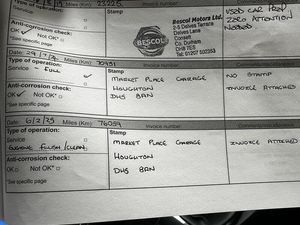 Miles (Km): 23225
Type of operation:
Stamp
USED CAR PREP
ZERO ATTENTION
NEEDED
Anti-corrosion check:
OK Not OK*
*See specific page
BESCOL
Bescol Motors Ltd.
2-5 Delves Terrace
Delves Lane
Consett
Co. Durham
DH8 7ES
Tel: 01207 502353
Date:
Miles (Km): 30951
Invoice number:
Type of operation:
Service
- FULL
Stamp
MARKET PLACE GARAGE
HOUGHTON
DH5 8AN
NO STAMP
INVOICE ATTACHED
Anti-corrosion check:
OK Not OK*
*See specific page
Date: 6/2/25
Miles (Km): 76059
Invoice number:
Type of operation:
Service
ENGINE FLUSH/CLEAN.
Stamp
MARKET PLACE GARAGE
HOUGHTON
DH5 8AN
INVOICE ATTACHED
Anti-corrosion check:
OK Not OK*
*See specific page